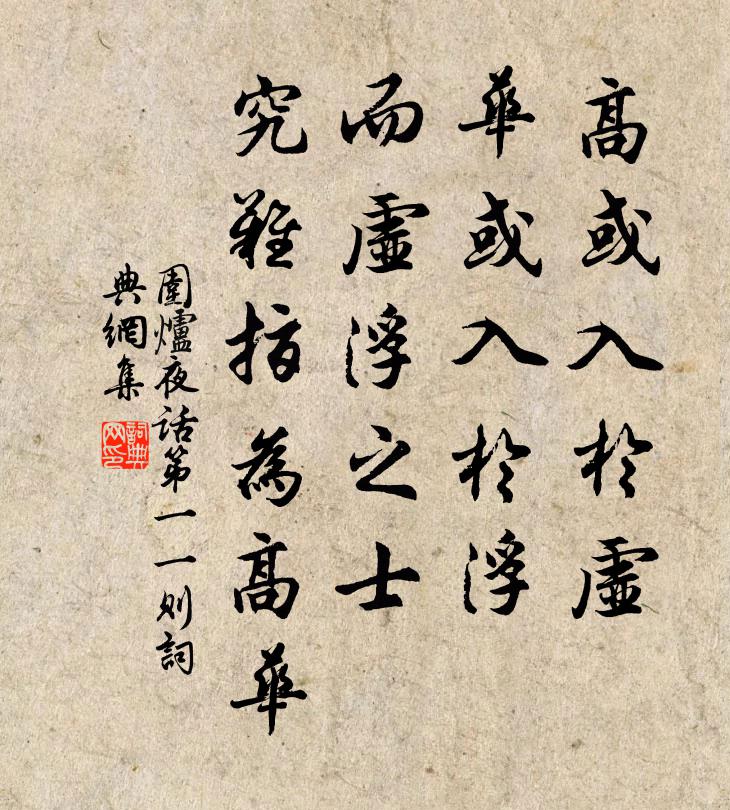 高或入於虛
華或入於浮
而虛浮之士
究難指為高華
圍爐夜话第一一则詞
典網集
詞典
网印